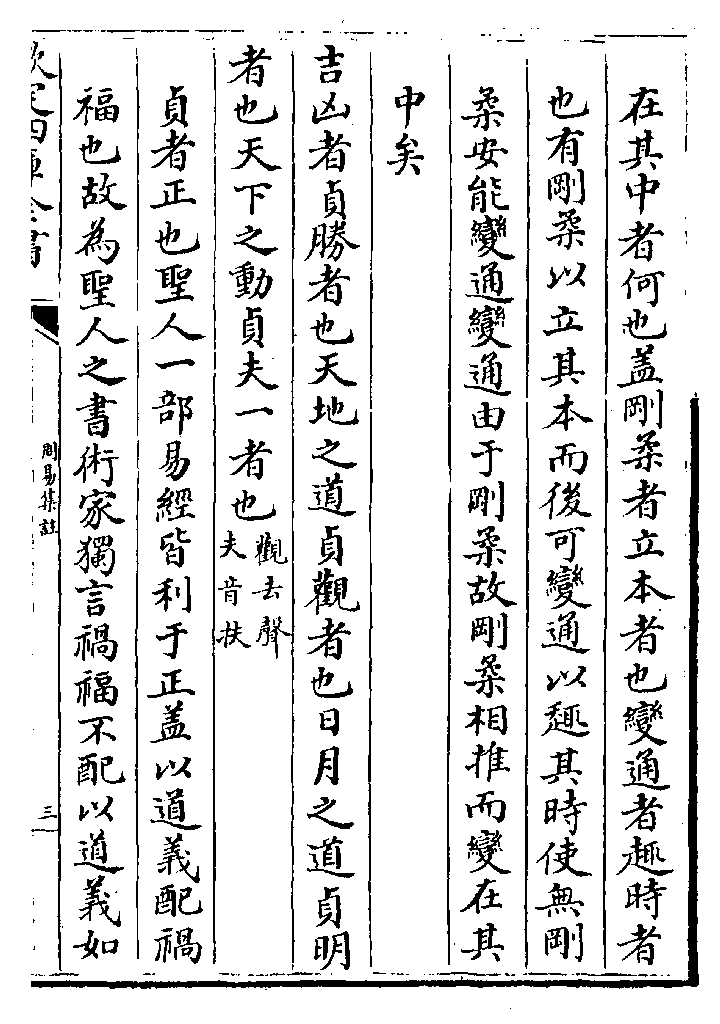 在其中者何也盖剛柔者立本者也變通者趣時者
也有剛柔以立其本而後可變通以趣其時使無剛
柔安能變通變通由于剛柔故剛柔相推而變在其
中矣
吉凶者貞勝者也天地之道貞觀者也日月之道貞明
者也天下之動貞夫一者也
觀去聲
夫音扶
貞者正也聖人一部易經皆利于正盖以道義配禍
福也故為聖人之書術家獨言禍福不配以道義如
欽定四庫全書
周易集註
三